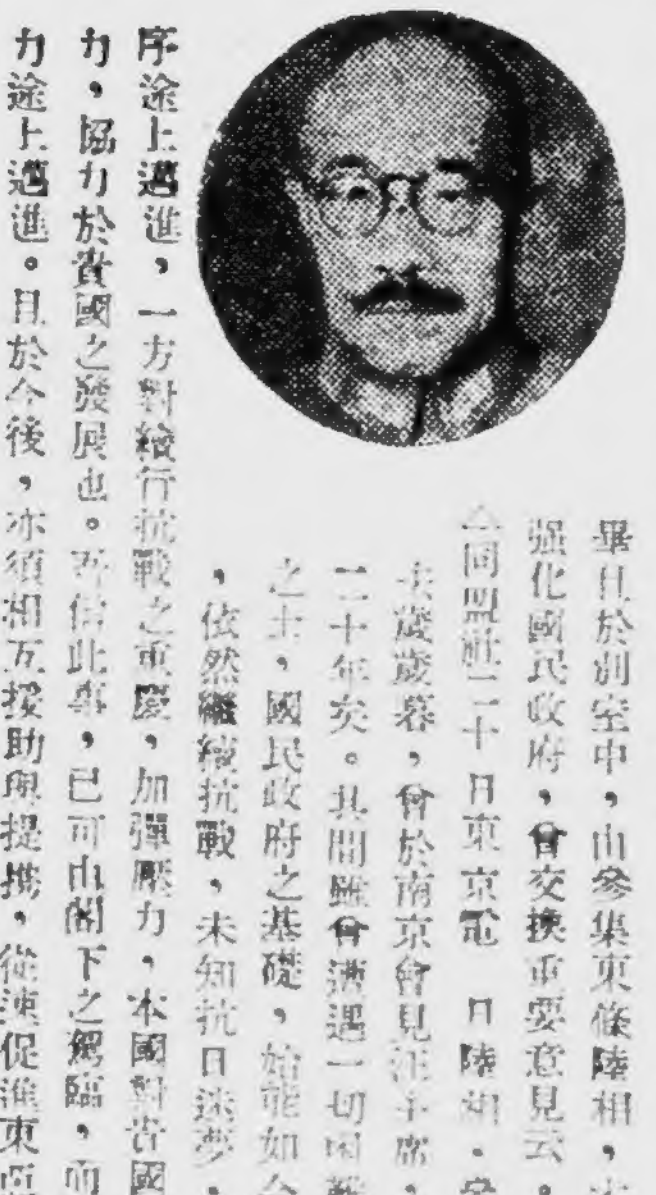 畢且於別室中，由參集東條陸相，
强化國民政府，會交換重要意見云。
同盟社二十日東京電　日陸相・
去歲歲暮，曾於南京會見汪主席，
二十年矣。其間雖曾遭遇一切困難
之士，國民政府之基礎，始能如今
，依然繼續抗戰，未知抗日迷夢，
序途上邁進，一方對續行抗戰之重慶，加彈壓力，本國對貴國
力，協力於貴國之發展也。吾信此事，已可由閣下之駕臨，而
力途上邁進。且於今後，亦須相互援助與提携，從速促進東亞